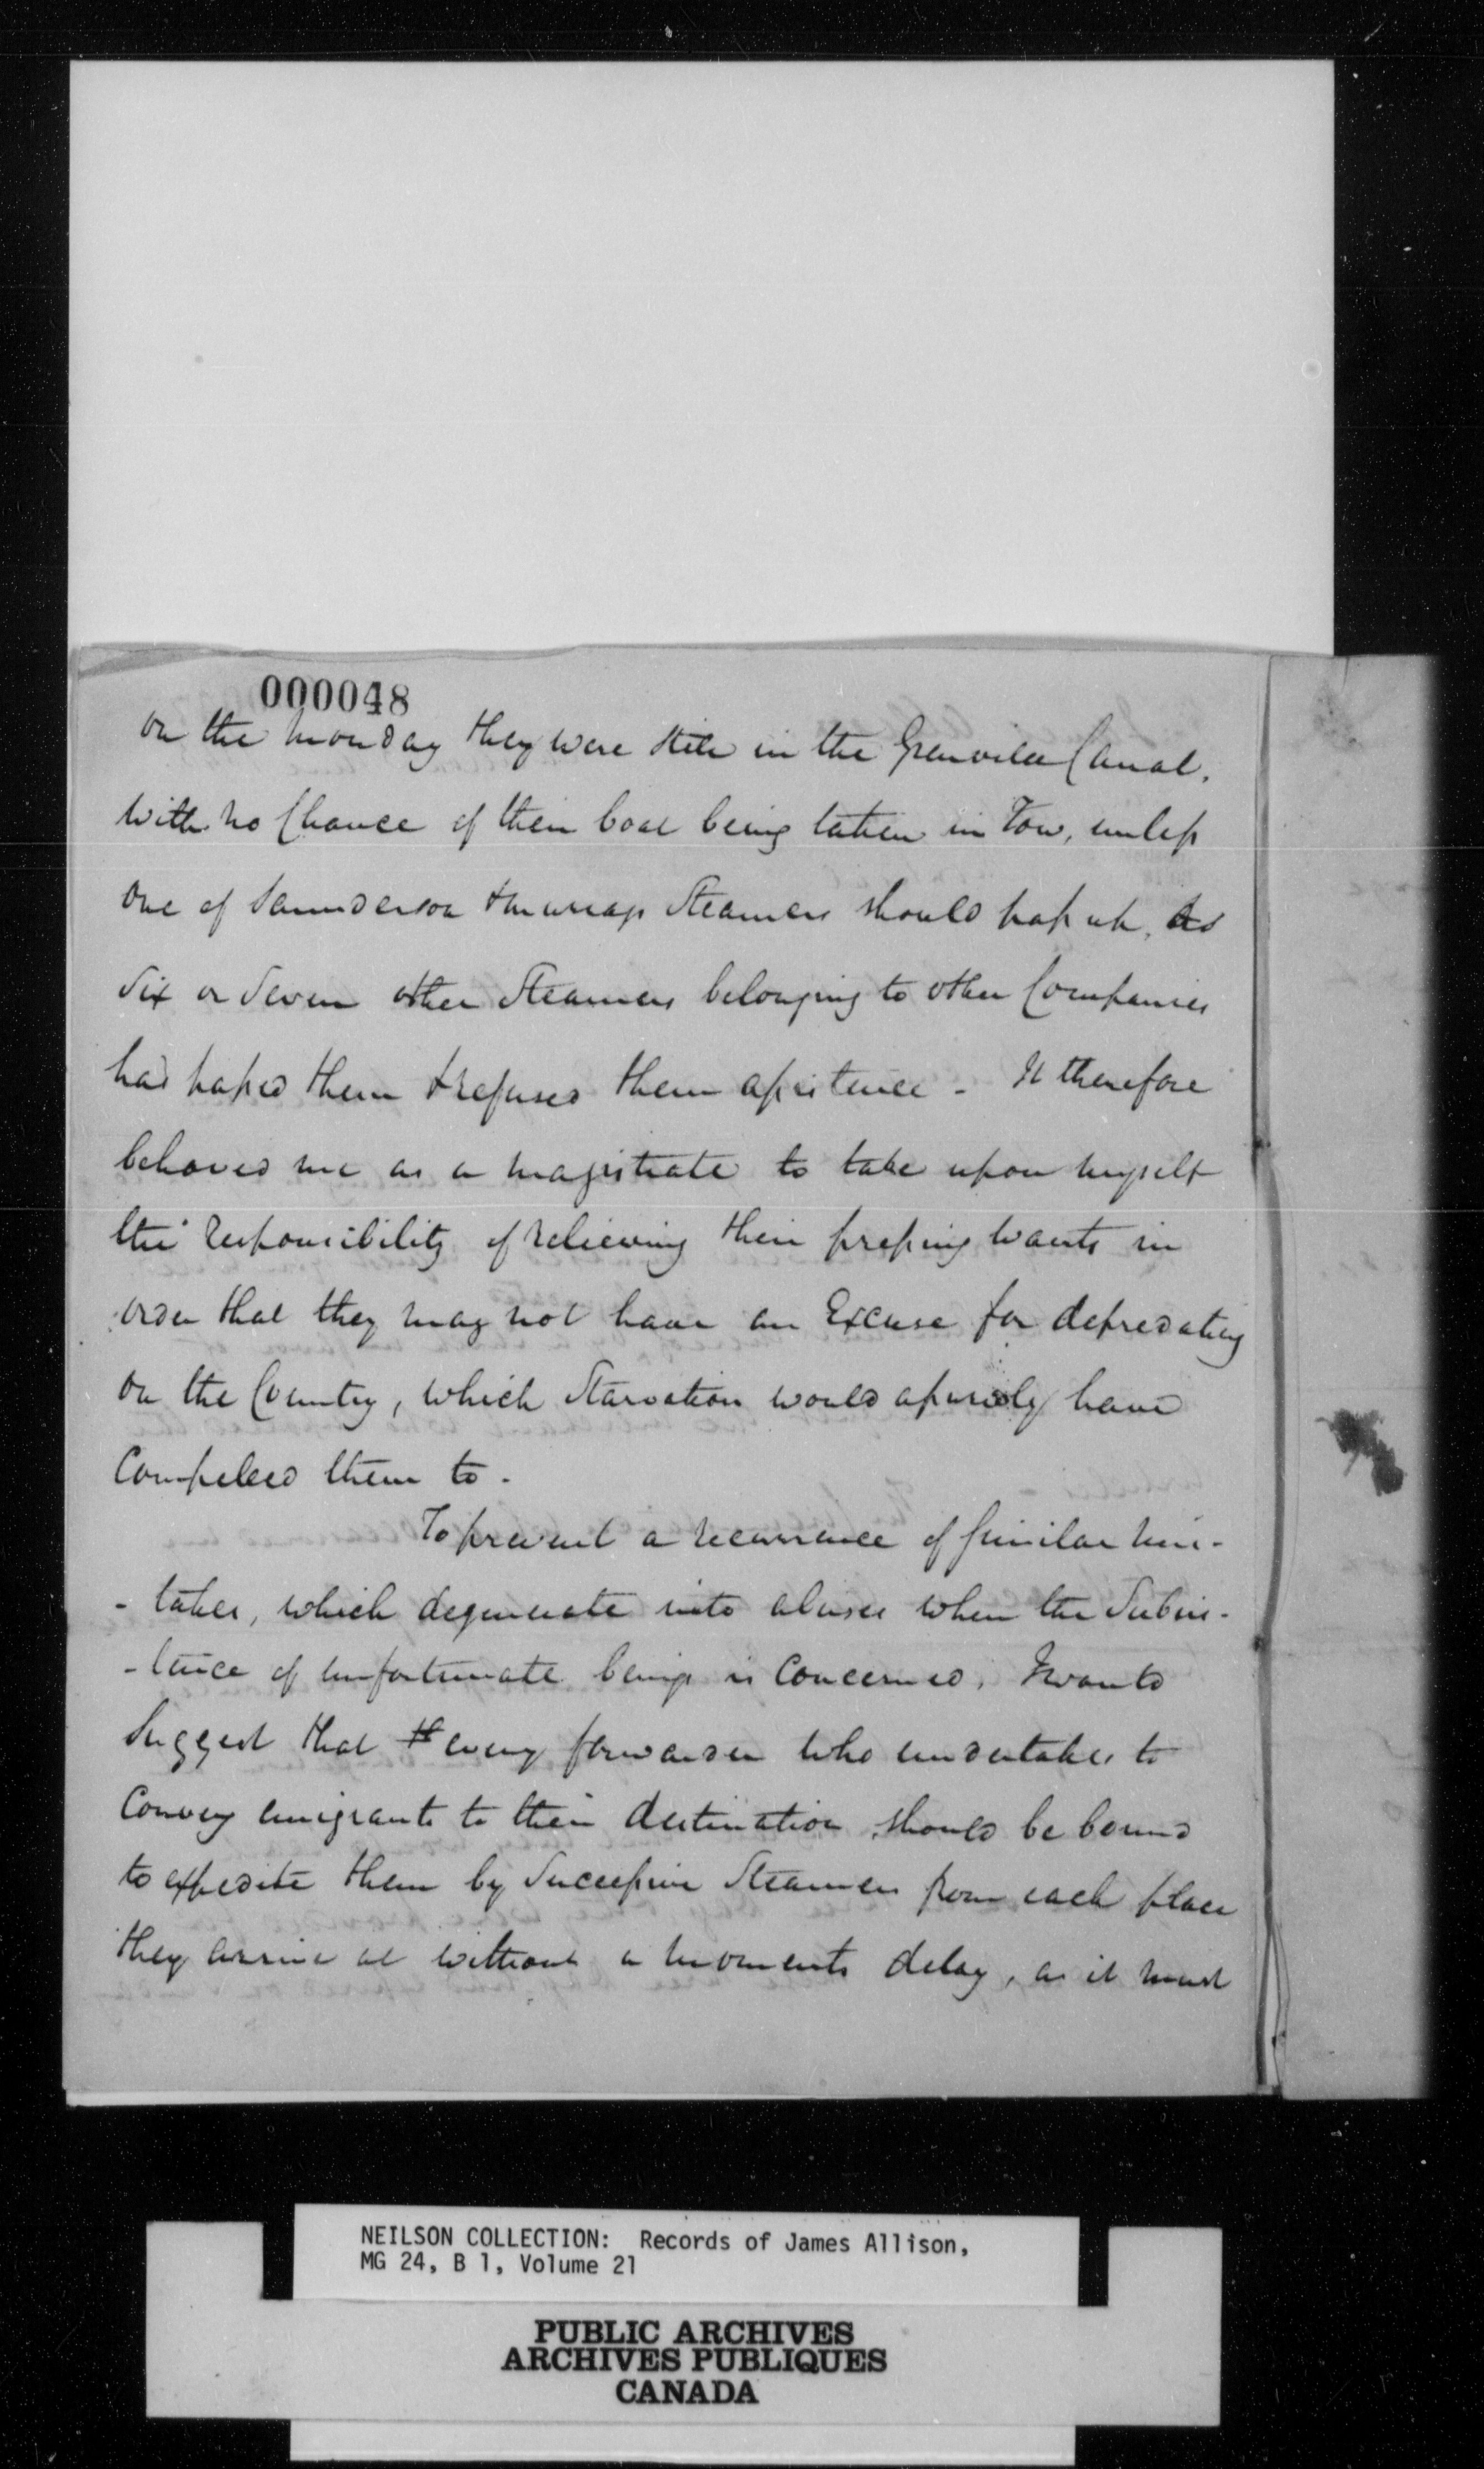 000048
on the Monday they were still in the Grenville Canal,
with no Chance of their boat being taken in Tow, unless
one of Saunderson & Murrays Steamers should pass up, as
six or seven other Steamers belonging to other Companies
had passed them & refused them assistance - It therefore
behoved me as a magistrate to take upon myself
the responsibility of relieving their pressing wants in
order that they may not have an Excuse for depredating
on the Country, which Starvation would assuredly have
Compelled them to -
To prevent a recurrence of similar mis-
- takes, which degenerate into abuses when the Subsis-
- tence of unfortunate beings is Concerned, I would
Suggest that every forwarder who undertakes to
Convey emigrants to their destination should be bound
to expedite them by Successive Steamers from each place
they arrive at without a moments delay, as it must
NEILSON COLLECTION: Records of James Allison,
MG 24, B 1, Volume 21
PUBLIC ARCHIVES
ARCHIVES PUBLIQUES
CANADA